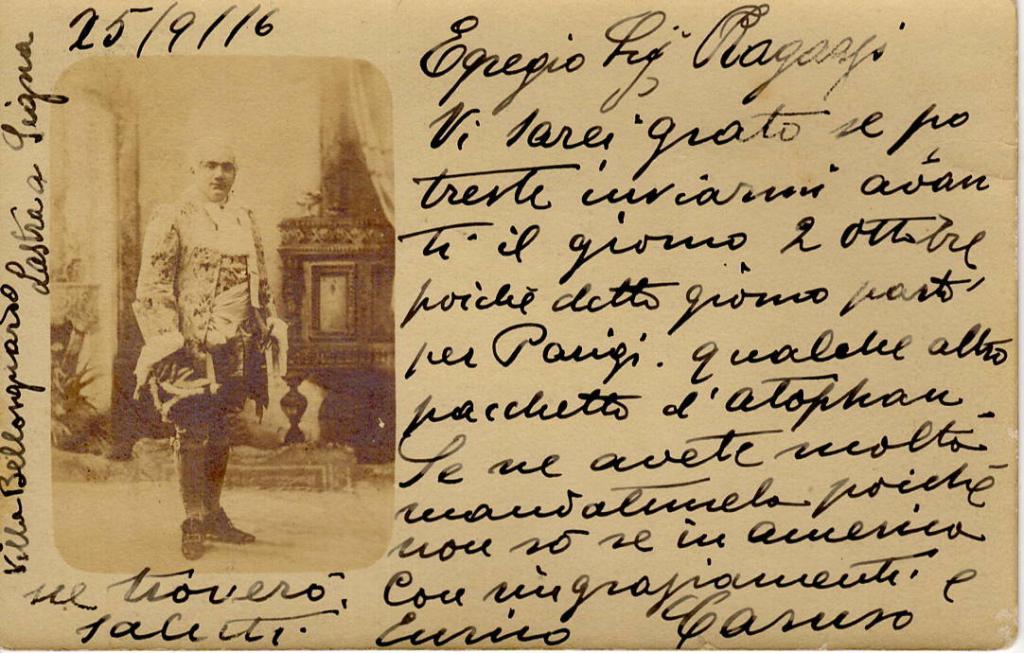 25/9/16
Villa Bellosguardo
Lastra a Signa
Egregio Sig. Ragazzi
Vi sarei grato se po
treste inviarmi avan
ti il giorno 2 ottobre
poichè detto giorno parto
per Parigi. qualche altro
pacchetto d'atophan.
Se ne avete molto
mandatemelo poichè
non sò se in america
ne troverò. Con ringraziamenti e
saluti. Enrico Caruso